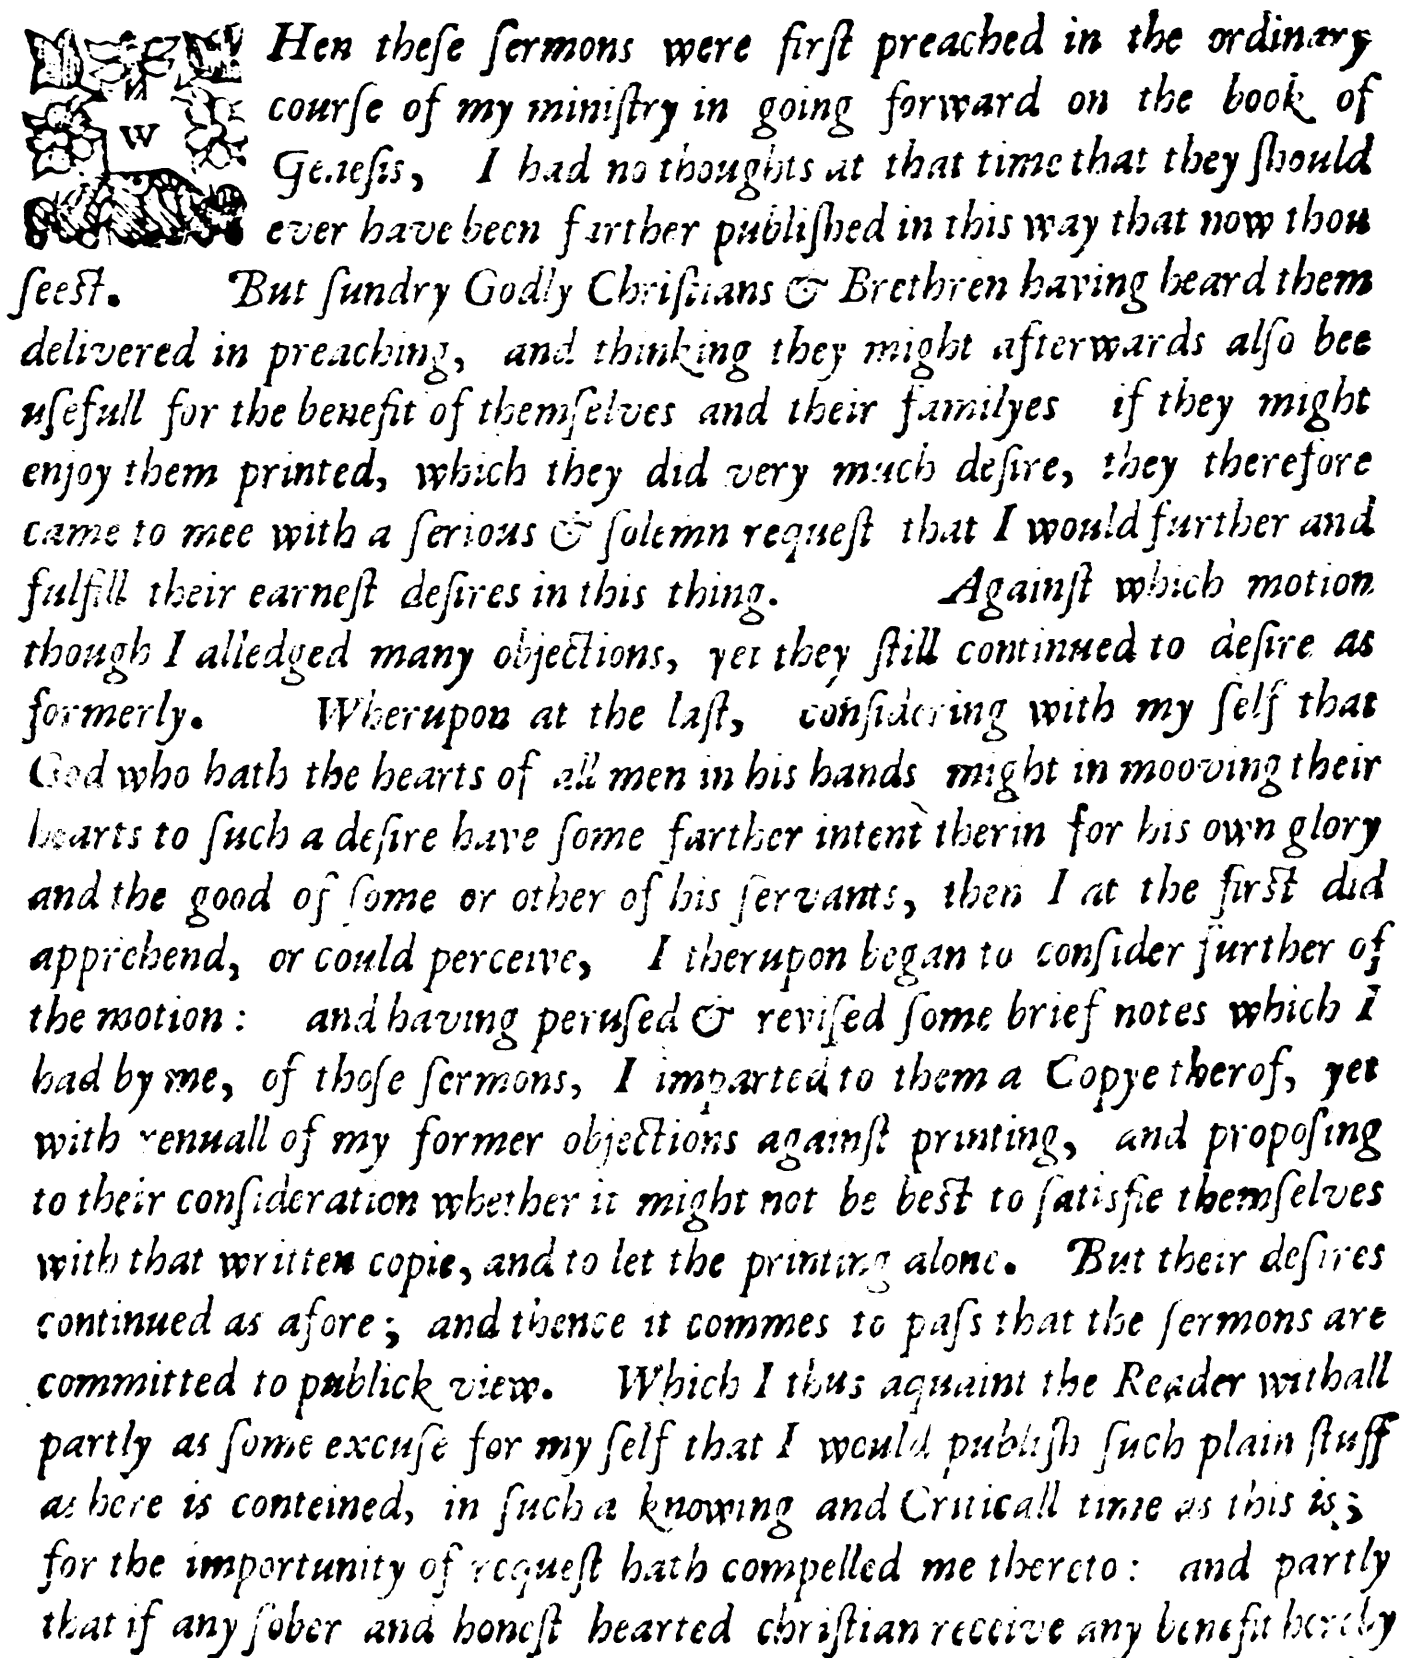 WHen theſe ſermons were firſt preached in the ordinary
courſe of my miniſtry in going forward on the book of
Geneſis, I had no thoughts at that time that they ſhould
ever have been farther publiſhed in this way that now thou
ſeeſt. But ſundry Godly Chriſtians & Brethren having heard them
delivered in preaching, and thinking they might afterwards alſo bee
uſefull for the benefit of themſelves and their familyes if they might
enjoy them printed, which they did very much deſire, they therefore
came to mee with a ſerious & ſolemn requeſt that I would further and
fulfill their earneſt deſires in this thing. Againſt which motion
though I alledged many objections, yet they ſtill continued to deſire as
formerly. Wherupon at the laſt, conſidering with my ſelf that
God who hath the hearts of all men in his hands might in mooving their
hearts to ſuch a deſire have ſome farther intent therin for his own glory
and the good of ſome or other of his ſervants, then I at the firſt did
apprehend, or could perceive, I therupon began to conſider further of
the motion: and having peruſed & reviſed ſome brief notes which I
had by me, of thoſe ſermons, I imparted to them a Copye therof, yet
with renuall of my former objections againſt printing, and propoſing
to their conſideration whether it might not be beſt to ſatisfie themſelves
with that written copie, and to let the printing alone. But their deſires
continued as afore; and thence it commes to paſs that the ſermons are
committed to publick view. Which I thus aquaint the Reader withall
partly as ſome excuſe for my ſelf that I would publiſh ſuch plain ſtuff
as here is conteined, in ſuch a knowing and Criticall time as this is;
for the importunity of requeſt hath compelled me thereto: and partly
that if any ſober and honeſt hearted chriſtian receive any benefit hereby